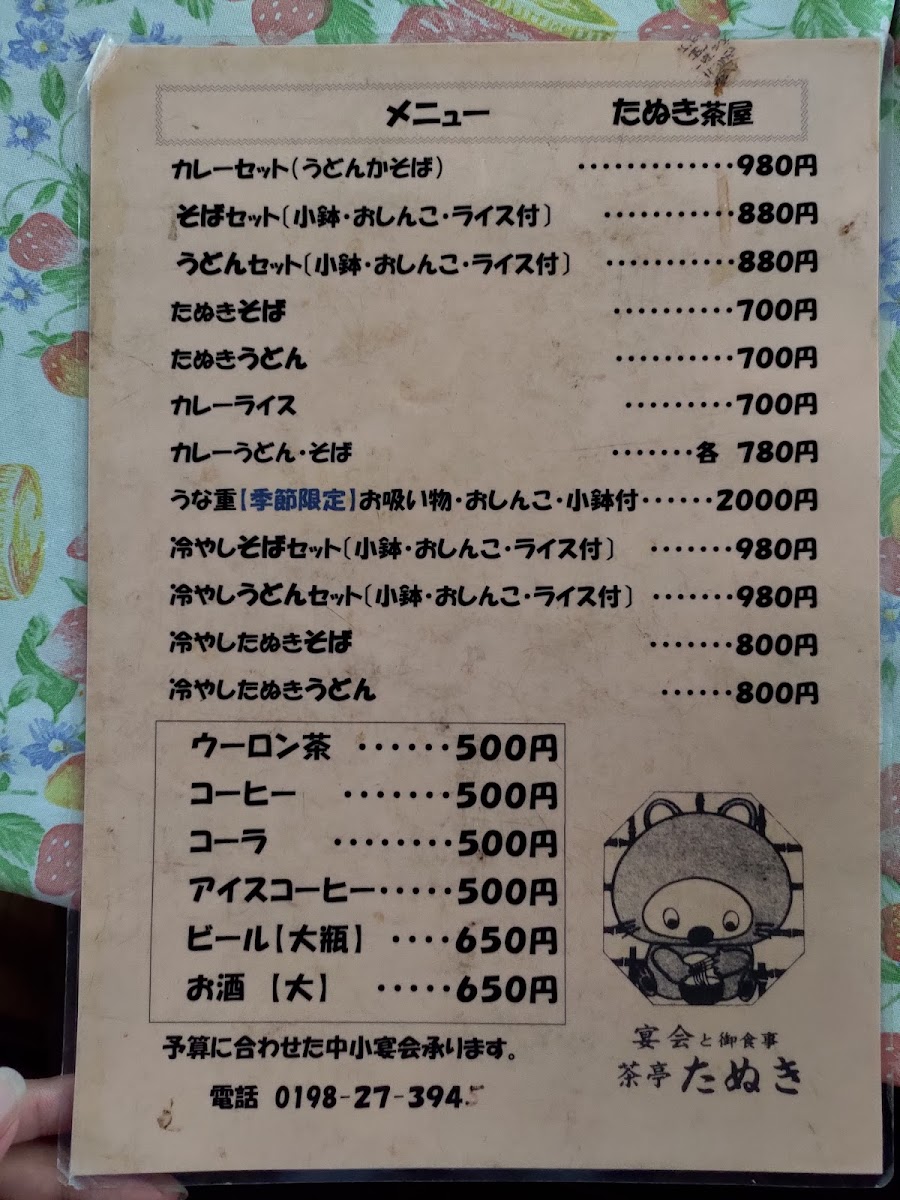 メニュー たぬき茶屋
カレーセット(うどんかそば) ・・・・・・・・・・・・・980円
そばセット〔小鉢・おしんこ・ライス付〕 ・・・・・・・・・・・880円
うどんセット〔小鉢・おしんこ・ライス付〕 ・・・・・・・・・・・880円
たぬきそば ・・・・・・・・・・700円
たぬきうどん ・・・・・・・・・・700円
カレーライス ・・・・・・・・・700円
カレーうどん・そば ・・・・・・・各 780円
うな重【季節限定】お吸い物・おしんこ・小鉢付・・・・・・2000円
冷やしそばセット〔小鉢・おしんこ・ライス付〕 ・・・・・・・980円
冷やしうどんセット〔小鉢・おしんこ・ライス付〕 ・・・・・・・980円
冷やしたぬきそば ・・・・・・・800円
冷やしたぬきうどん ・・・・・・800円
ウーロン茶 ・・・・・・500円
コーヒー ・・・・・・・500円
コーラ ・・・・・・・・500円
アイスコーヒー・・・・・500円
ビール【大瓶】 ・・・・650円
お酒 【大】 ・・・・・650円
予算に合わせた中小宴会承ります。
電話 0198-27-3945
宴会と御食事
茶亭 たぬき